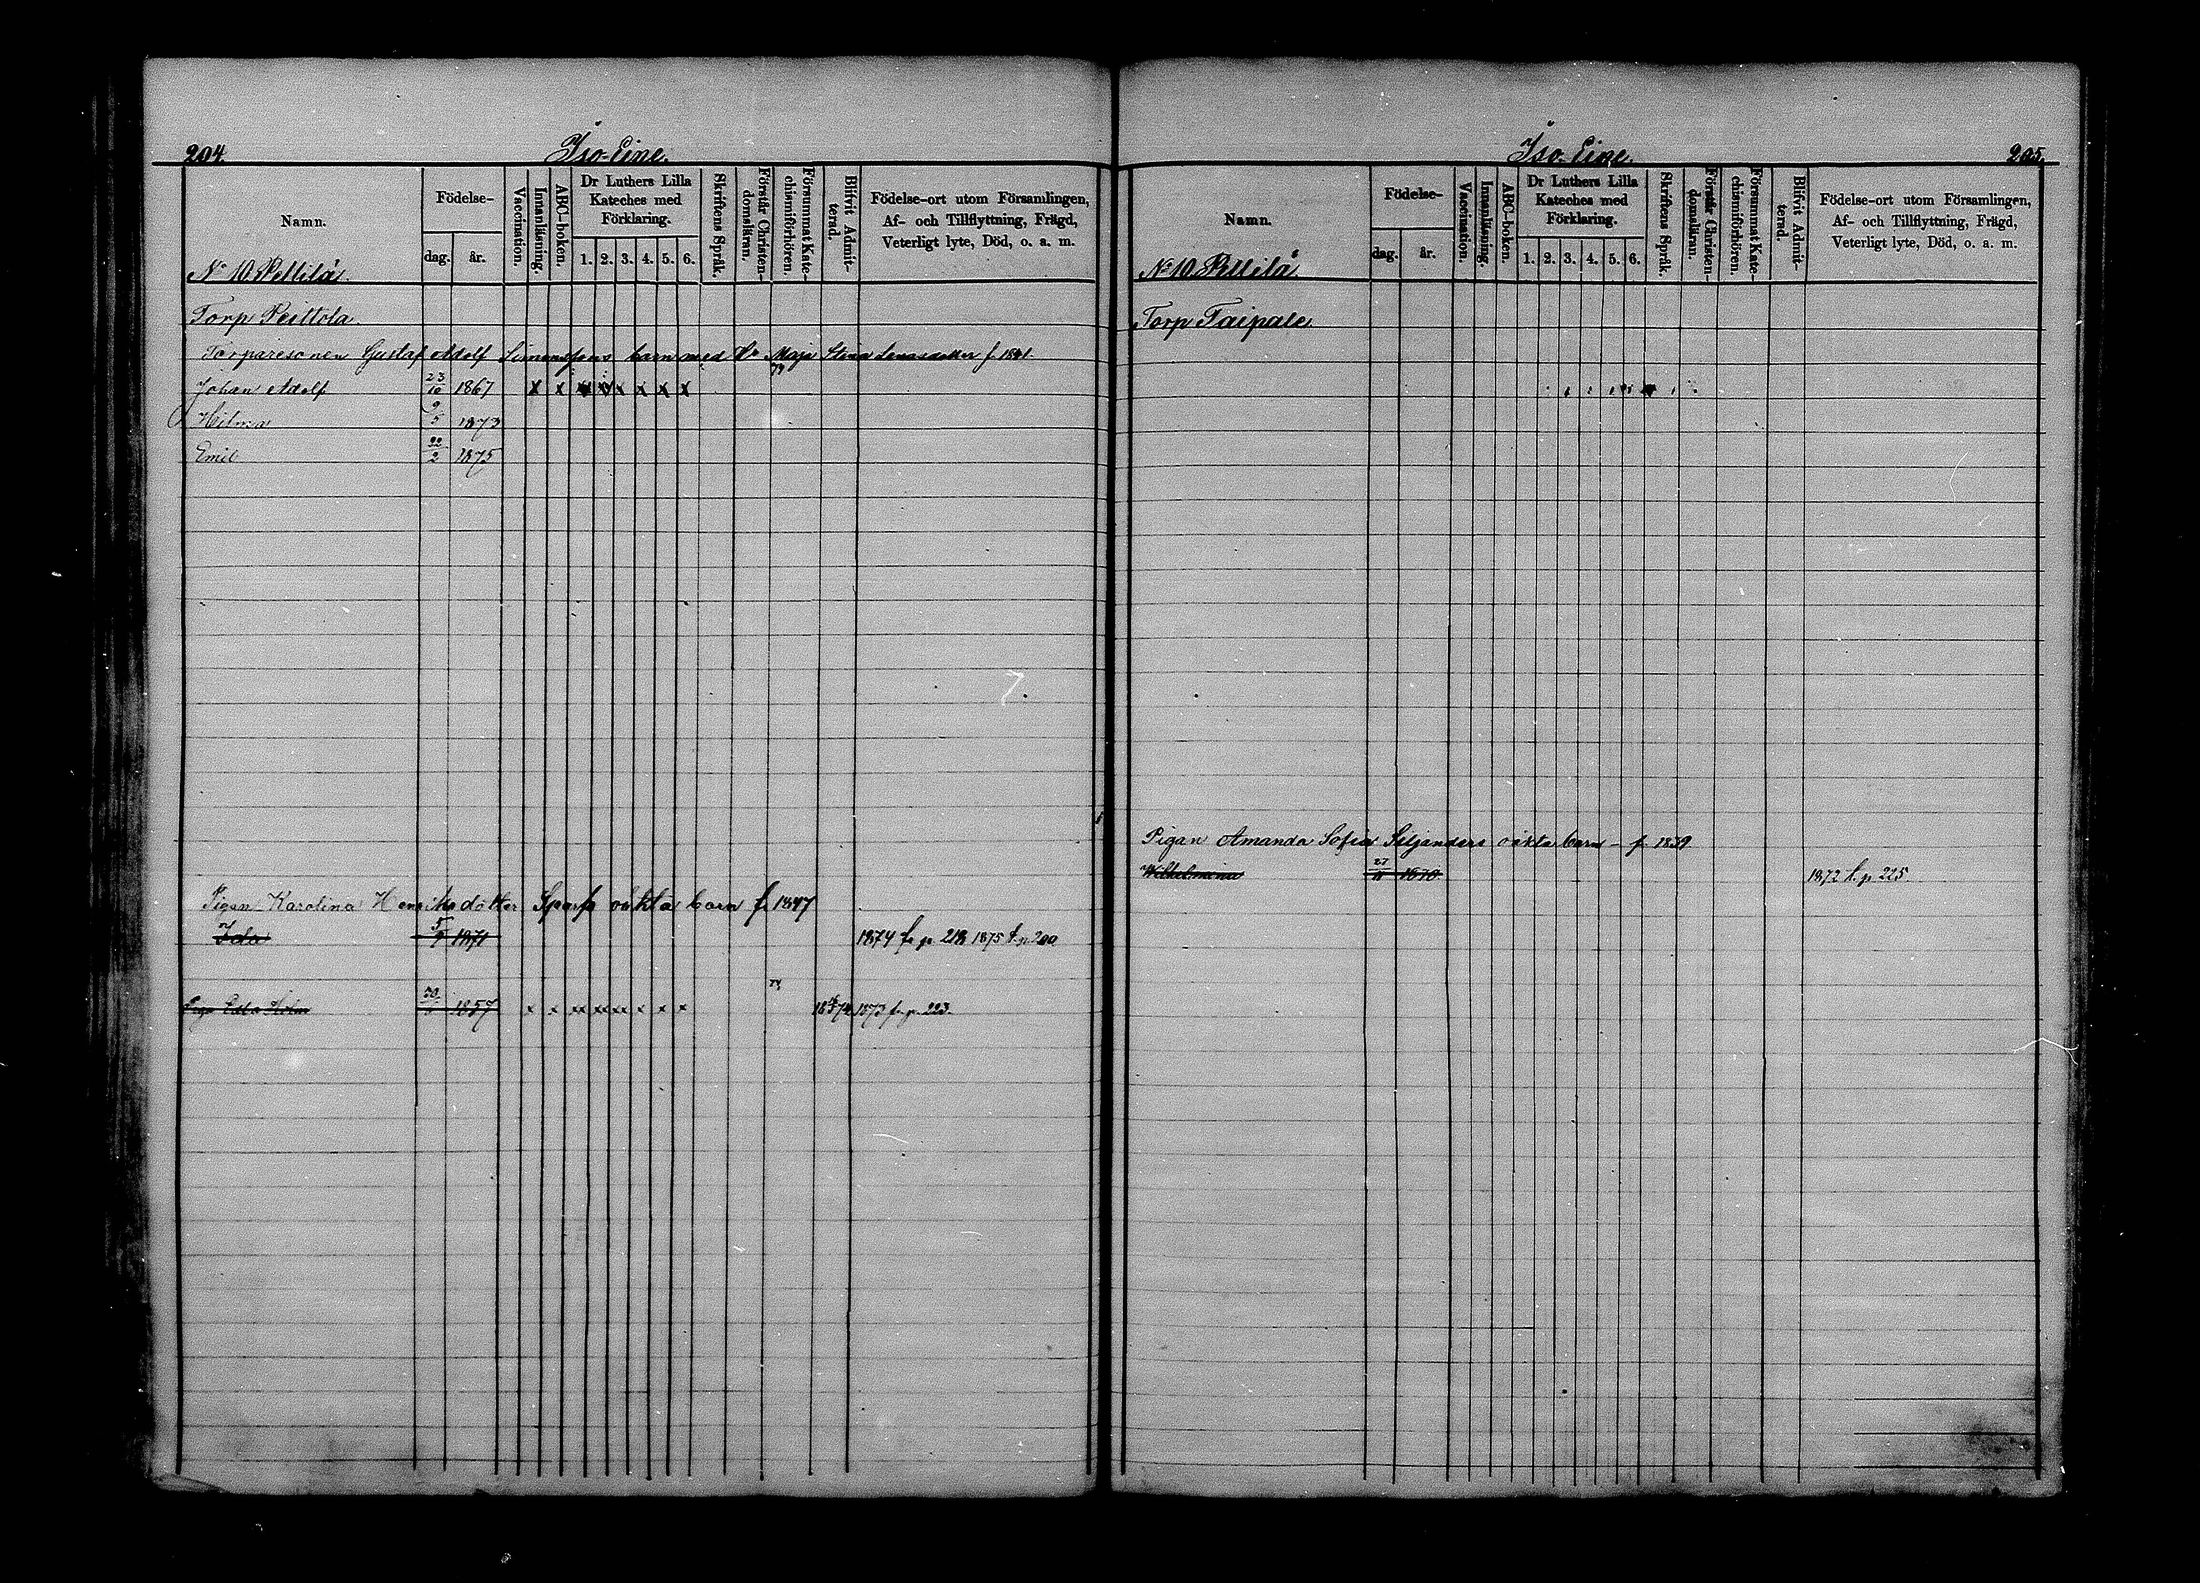 204. Iso-Eine.
Namn.
Födelse-
dag. år.
Vaccination.
Innanläsning.
ABC-boken.
Dr Luthers Lilla Kateches med Förklaring.
1. 2. 3. 4. 5. 6.
Skriftens Språk.
Förstår Christendomsläran.
Försummat Katechismiförhören.
Blifvit Admitterad.
Födelse-ort utom Församlingen, Af- och Tillflyttning, Frägd, Veterligt lyte, Död, o. a. m.
No 10 Pellilä.
Torp Peittola.
Torparesonen Gustaf Adolf Simonssons barn med Maja Stina
Johan Adolf 23/10 1867 x x x x x x x x
Hilma 9/5 1873
Emil 22/2 1875
Pigan Karolina Henriksdotter oäkta barn f. 1847
Ida 1871 1874 fr. p. 218 1875 t. p. 200
Piga Edla Holm 1857 x x x x x x x x 1873 fr. p. 223.
Iso-Eine. 205.
Namn.
Födelse-
dag. år.
Vaccination.
Innanläsning.
ABC-boken.
Dr Luthers Lilla Kateches med Förklaring.
1. 2. 3. 4. 5. 6.
Skriftens Språk.
Förstår Christendomsläran.
Försummat Katechismiförhören.
Blifvit Admitterad.
Födelse-ort utom Församlingen, Af- och Tillflyttning, Frägd, Veterligt lyte, Död, o. a. m.
No 10 Pellilä
Torp Taipale
Pigan Amanda Sofia Seljanders oäkta barn - f. 1839
Wilhelmina 27/11 1870 1872 t. p. 225.